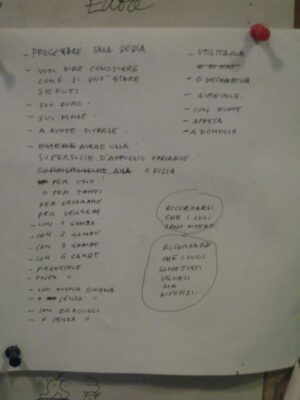 - PROGETTARE UNA SEDIA
- VUOL DIRE CONOSCERE
COME SI PUO' STARE
SEDUTI
- SUL DURO
- SUL MOLLE
- A QUOTE DIVERSE
- AVERE UNA
SUPERFICIE D'APPOGGIO VARIABILE
O FISSA
- PER UNO
O PER TANTI
PER LAVORARE
PER LEGGERE
- CON 1 GAMBA
- CON 2 GAMBE
- CON 3 GAMBE
- CON 4 GAMBE
- PIEGHEVOLE
- CON
- O SENZA "
- CON BRACCIOLI
- O SENZA "
- UTILITARIA
- O DECORATIVA
- GIREVOLE
- CON RUOTE
- APPESA
- A DONDOLO
RICORDARSI
CHE I CULI
SONO
RICORDARSI
CHE I CULI
SONO TUTTI
UGUALI
MA
DIVERSI